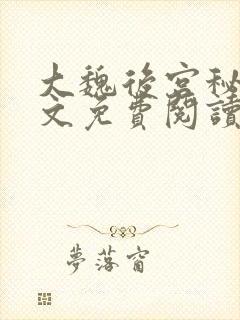 大魏後宮秘
文免費閱讀
夢落窗